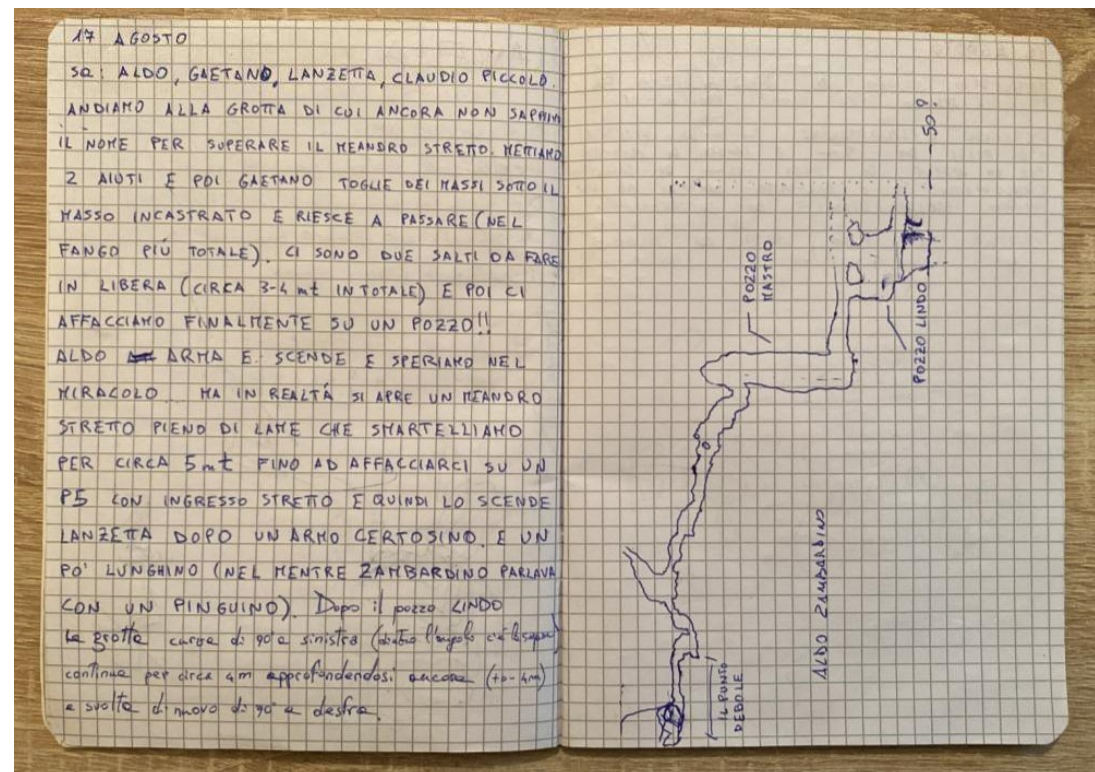 17 AGOSTO
SQ: ALDO, GAETANO, LANZETTA, CLAUDIO PICCOLO.
ANDIAMO ALLA GROTTA DI CUI ANCORA NON SAPPIAMO
IL NOME PER SUPERARE IL MEANDRO STRETTO. METTIAMO
2 AIUTI E POI GAETANO TOGLIE DEI MASSI SOTTO IL
MASSO INCASTRATO E RIESCE A PASSARE (NEL
FANGO PIÙ TOTALE). CI SONO DUE SALTI DA FARE
IN LIBERA (CIRCA 3-4 mt IN TOTALE) E POI CI
AFFACCIAMO FINALMENTE SU UN POZZO!!
ALDO ARMA E SCENDE E SPERIAMO NEL
MIRACOLO... MA IN REALTÁ SI APRE UN MEANDRO
STRETTO PIENO DI LAME CHE SMARTELLIAMO
PER CIRCA 5mt FINO AD AFFACCIARCI SU UN
P5 CON INGRESSO STRETTO E QUINDI LO SCENDE
LANZETTA DOPO UN ARMO CERTOSINO E UN
PO' LUNGHINO (NEL MENTRE ZAMBARDINO PARLAVA
CON UN PINGUINO). Dopo il pozzo LINDO
la grotta curva di 90° a sinistra (dietro l'angolo c'è
continua per circa 4m approfondendosi ancora (+o-4m)
e svolta di nuovo di 90° a destra.
-50?
POZZO
MASTRO
POZZO LINDO
ALDO ZAMBARDINO
IL PUNTO
DEBOLE